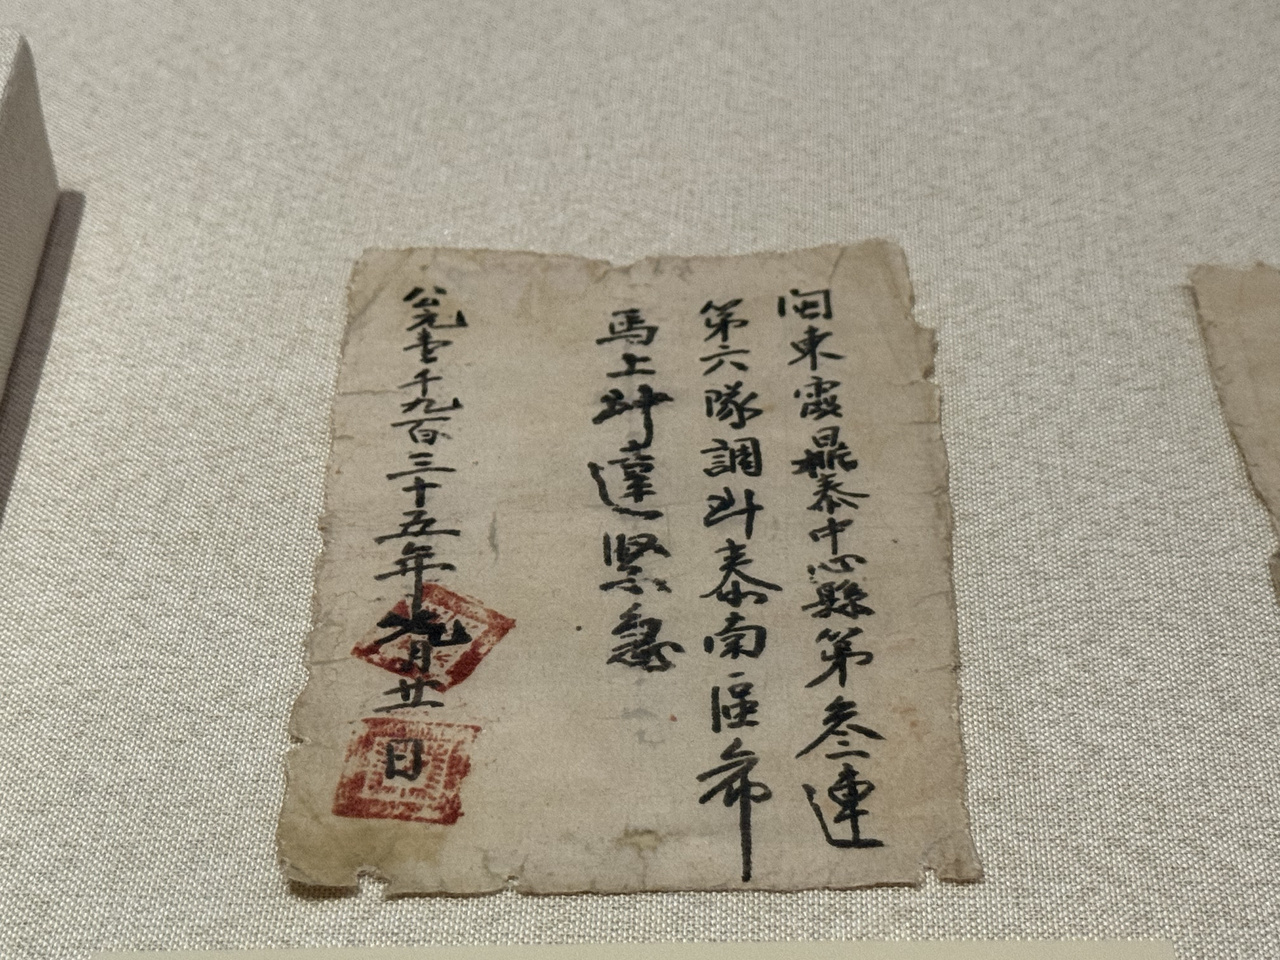 閩東霞鼎泰中心縣第叁連
第六隊調斗泰南區命
馬上斗達緊急
公元壹千九百三十五年九月廿日